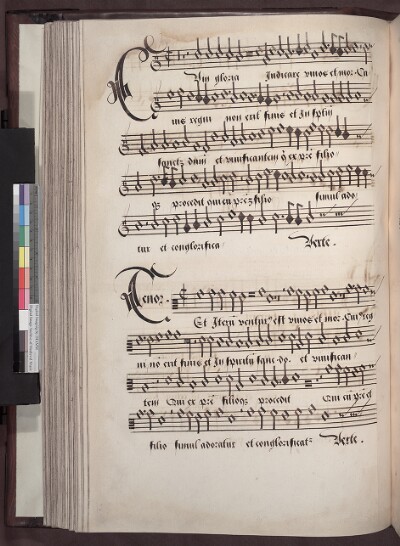 Cum gloria Judicare vivos et mor. Cu
ius regni non erit finis et In spm
sanctū dnm et vivificantem q̄ ex prē filio
qz procedit qui cū prē z filio simul ado
tur et conglorifica Verte.
Tenor.
Et Iterū venturus est vivos et mor. Cui reg
ni nō erit finis et In spiritū sanc do. et vivifican
tem Qui ex prē filioqz procedit Qui cū prē et
filio simul adoratur et conglorificatz Verte.